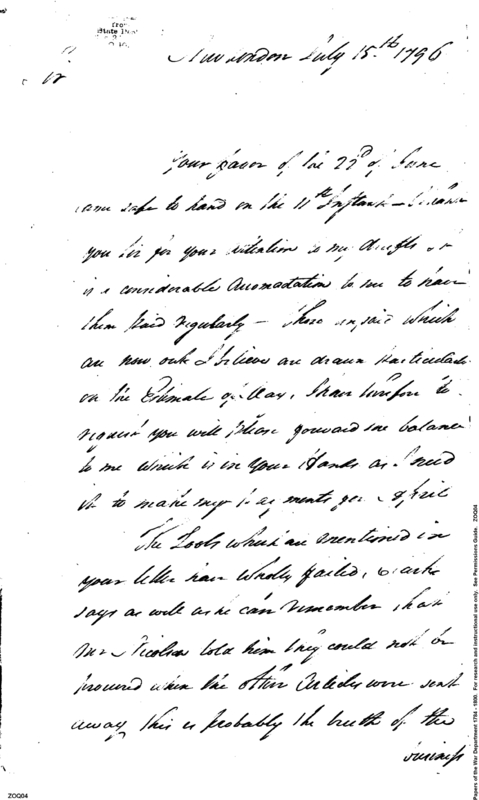 from
State
12
New London July 15th 1796
Your favor of the 22d of June
came safe to hand on the 11th Instant - I thank
you Sir for your attention to my drafts
is a considerable Accomodation to me to have
them paid regularly - Those unpaid which
are now out I believe are drawn particularly
on the Estimate of May, I have therefore to
request you will please forward the balance
to me which is in your Hands as I need
it to make my payments for April
The Tools which are mentioned in
your letter have wholly failed,
says as well as he can remember that
Mr Nicolson told him they could not be
procured when the other Articles were sent
away, this is probably the truth of the
business
ZOG04
Papers of the War Department 1784 - 1800. For research and instructional use only. See Permissions Guide. ZOG04